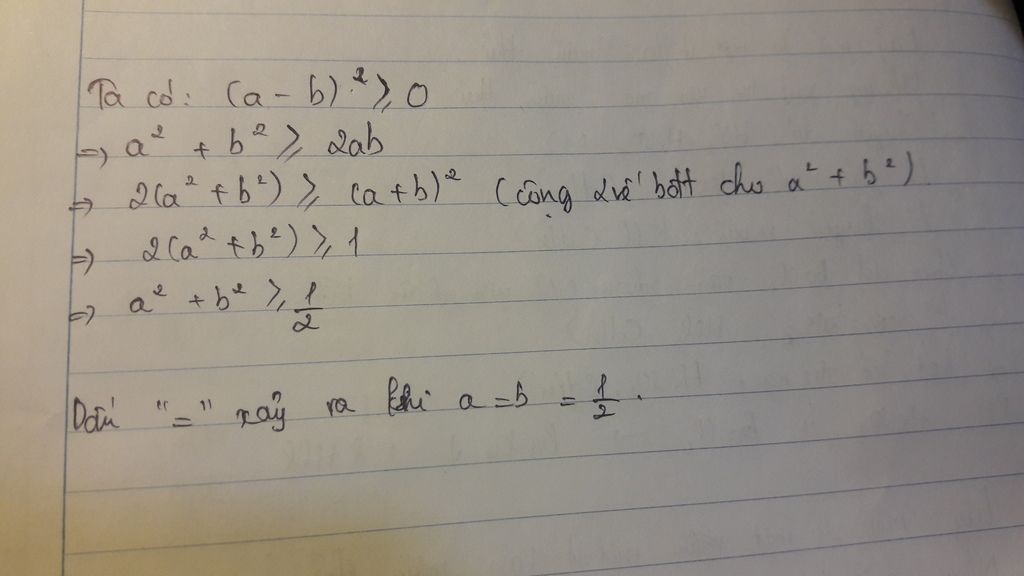 Ta có: (a - b)² ≥ 0
=> a² + b² ≥ 2ab
=> 2(a² + b²) ≥ (a + b)² (cộng 2 vế bđt cho a² + b²)
=> 2(a² + b²) ≥ 1
=> a² + b² ≥ 1/2
Dấu "=" xảy ra khi a = b = 1/2.